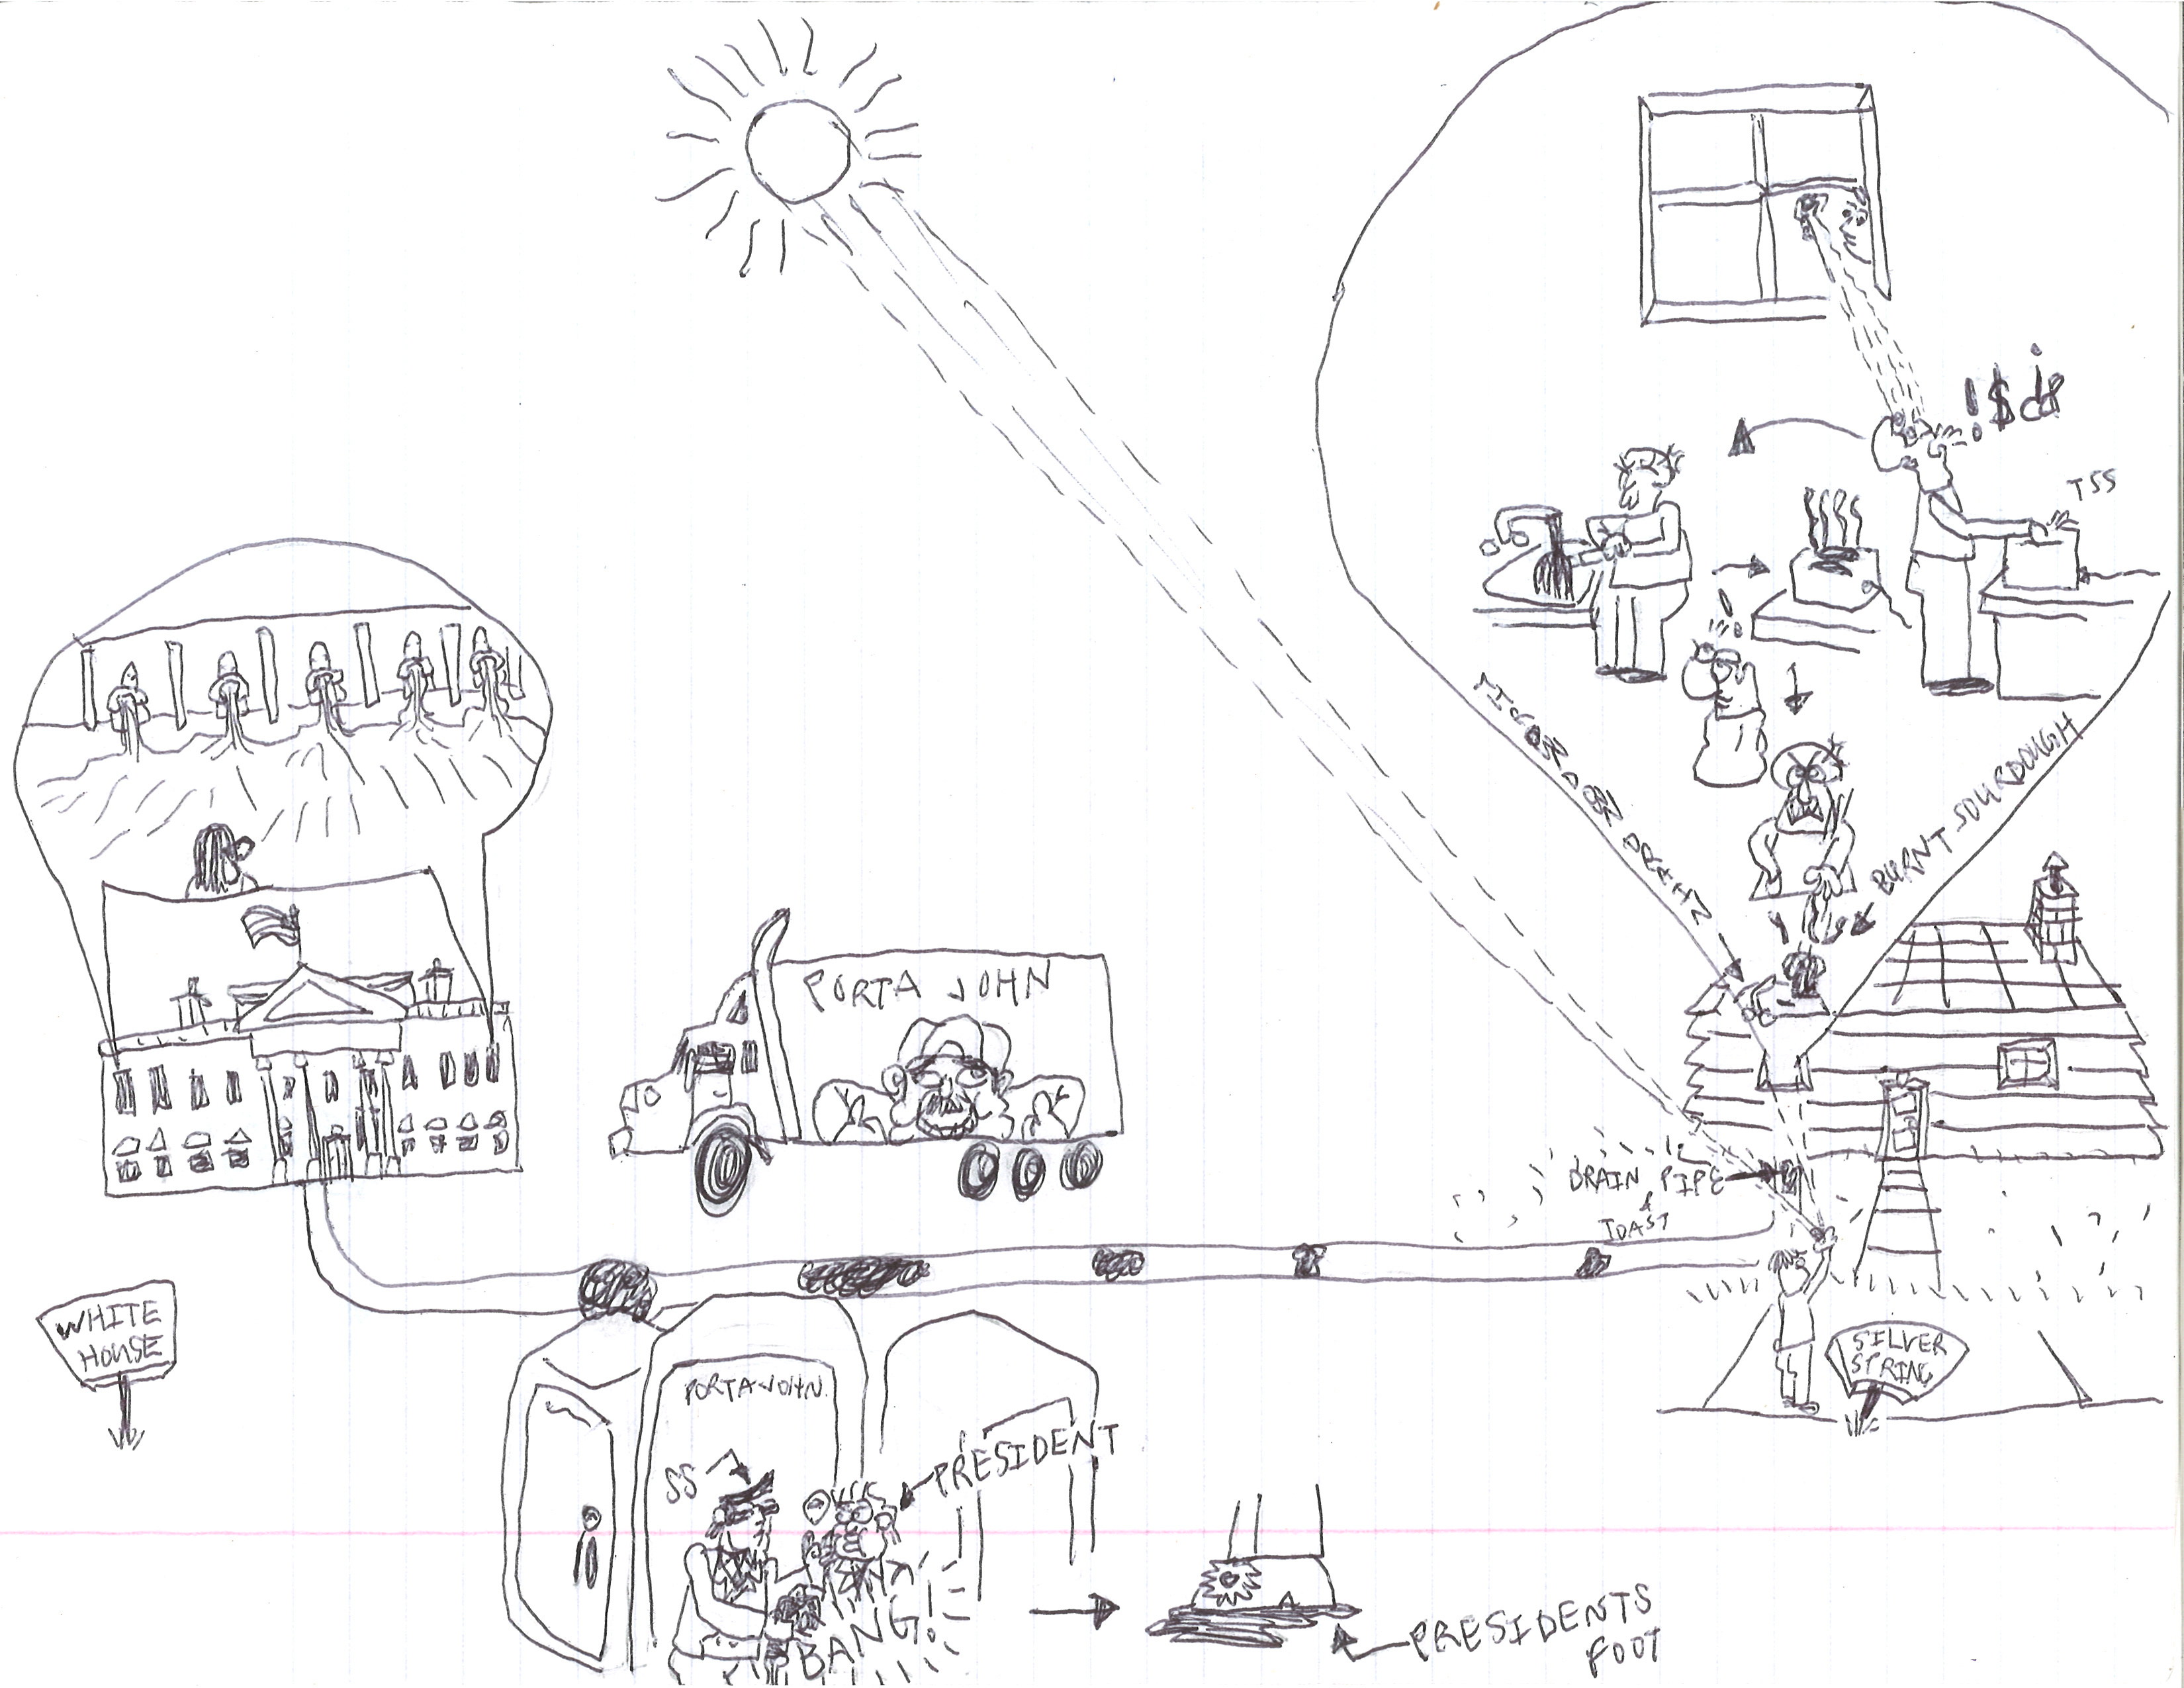 TSS
BURNT SOURDOUGH
PORTA JOHN
DRAIN PIPE
&
TOAST
WHITE
HOUSE
SILVER
SPRING
PORTA-JOHN
SS
PRESIDENT
BANG!
PRESIDENTS
FOOT